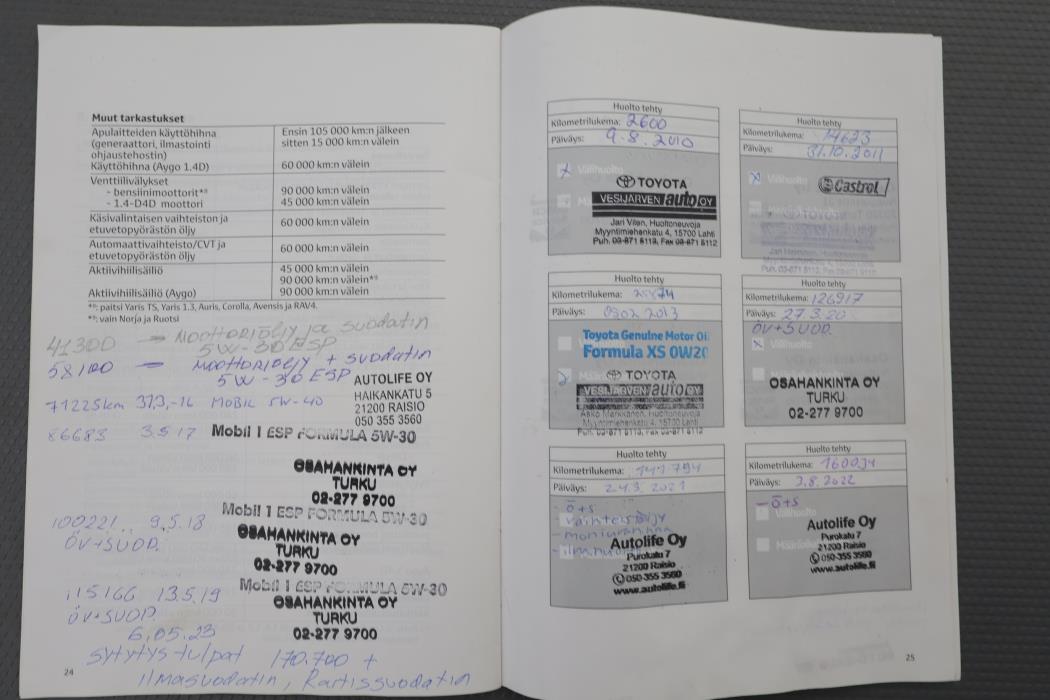 Muut tarkastukset
Apulaitteiden käyttöhihna
(generaattori, ilmastointi
ohjaustehostin)
Käyttöhihna (Aygo 1.4D)
Ensin 105 000 km:n jälkeen
sitten 15 000 km:n välein
60 000 km:n välein
Venttiilivälykset
- bensiinimoottorit*¹⁾
- 1.4-D4D moottori
90 000 km:n välein
45 000 km:n välein
Käsivalintaisen vaihteiston ja
etuvetopyörästön öljy
60 000 km:n välein
Automaattivaihteisto/CVT ja
etuvetopyörästön öljy
60 000 km:n välein
Aktiivihiilisäiliö
Aktiivihiilisäiliö (Aygo)
45 000 km:n välein
90 000 km:n välein*²⁾
90 000 km:n välein
*¹⁾: paitsi Yaris TS, Yaris 1.3, Auris, Corolla, Avensis ja RAV4.
*²⁾: vain Norja ja Ruotsi
41300 → MOOTTORIÖLJY ja SUODATIN
5W-30 ESP
58100 → MOOTTORIÖLJY + SUODATIN
5W-30 ESP
AUTOLIFE OY
HAIKANKATU 5
21200 RAISIO
050 355 3560
71225km 31,3,-16 MOBIL 5W-40
86683 3.5.17 Mobil 1 ESP FORMULA 5W-30
OSAHANKINTA OY
TURKU
02-277 9700
Mobil 1 ESP FORMULA 5W-30
100221.. 9.5.18
ÖV+SUOD.
OSAHANKINTA OY
TURKU
02-277 9700
Mobil 1 ESP FORMULA 5W-30
115166 13.5.19
ÖV+SUOD.
OSAHANKINTA OY
TURKU
02-277 9700
6.05.23
Sytytystulpat 170.700 +
ilmasuodatin, Raitissuodatin
24
Huolto tehty
Kilometrilukema: 2600
Päiväys: 9.8.2010
x Välihuolto
TOYOTA
VESIJÄRVEN auto OY
Jari Vilen, Huoltoneuvoja
Myyntimiehenkatu 4, 15700 Lahti
Puh. 03-871 6113, Fax 03-871 6112
Huolto tehty
Kilometrilukema: 14623
Päiväys: 31.10.2011
x Välihuolto
Castrol
TOYOTA
Huolto tehty
Kilometrilukema: 25874
Päiväys: 0502 2013
Toyota Genuine Motor Oil
Formula XS 0W20
TOYOTA
VESIJÄRVEN auto OY
Asko Markkanen, Huoltoneuvoja
Myyntimiehenkatu 4, 15700 Lahti
Puh. 03-871 6113, Fax 03-871 6112
Huolto tehty
Kilometrilukema: 126917
Päiväys: 27.3.20
ÖV+SUOD.
x
OSAHANKINTA OY
TURKU
02-277 9700
Huolto tehty
Kilometrilukema: 141794
Päiväys: 24.3.2021
- ö+s
- vaihteistöljy
Autolife Oy
Purokatu 7
21200 Raisio
050-355 3560
www.autolife.fi
Huolto tehty
Kilometrilukema: 160034
Päiväys: 2.8.2022
- ö+s
Välihuolto
Autolife Oy
Purokatu 7
21200 Raisio
050-355 3560
www.autolife.fi
25